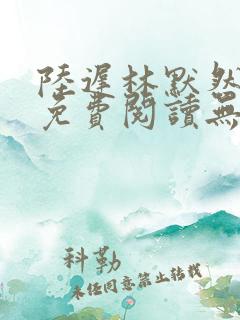 陸遲林默然
免費閱讀無
科勒
未经同意禁止转载